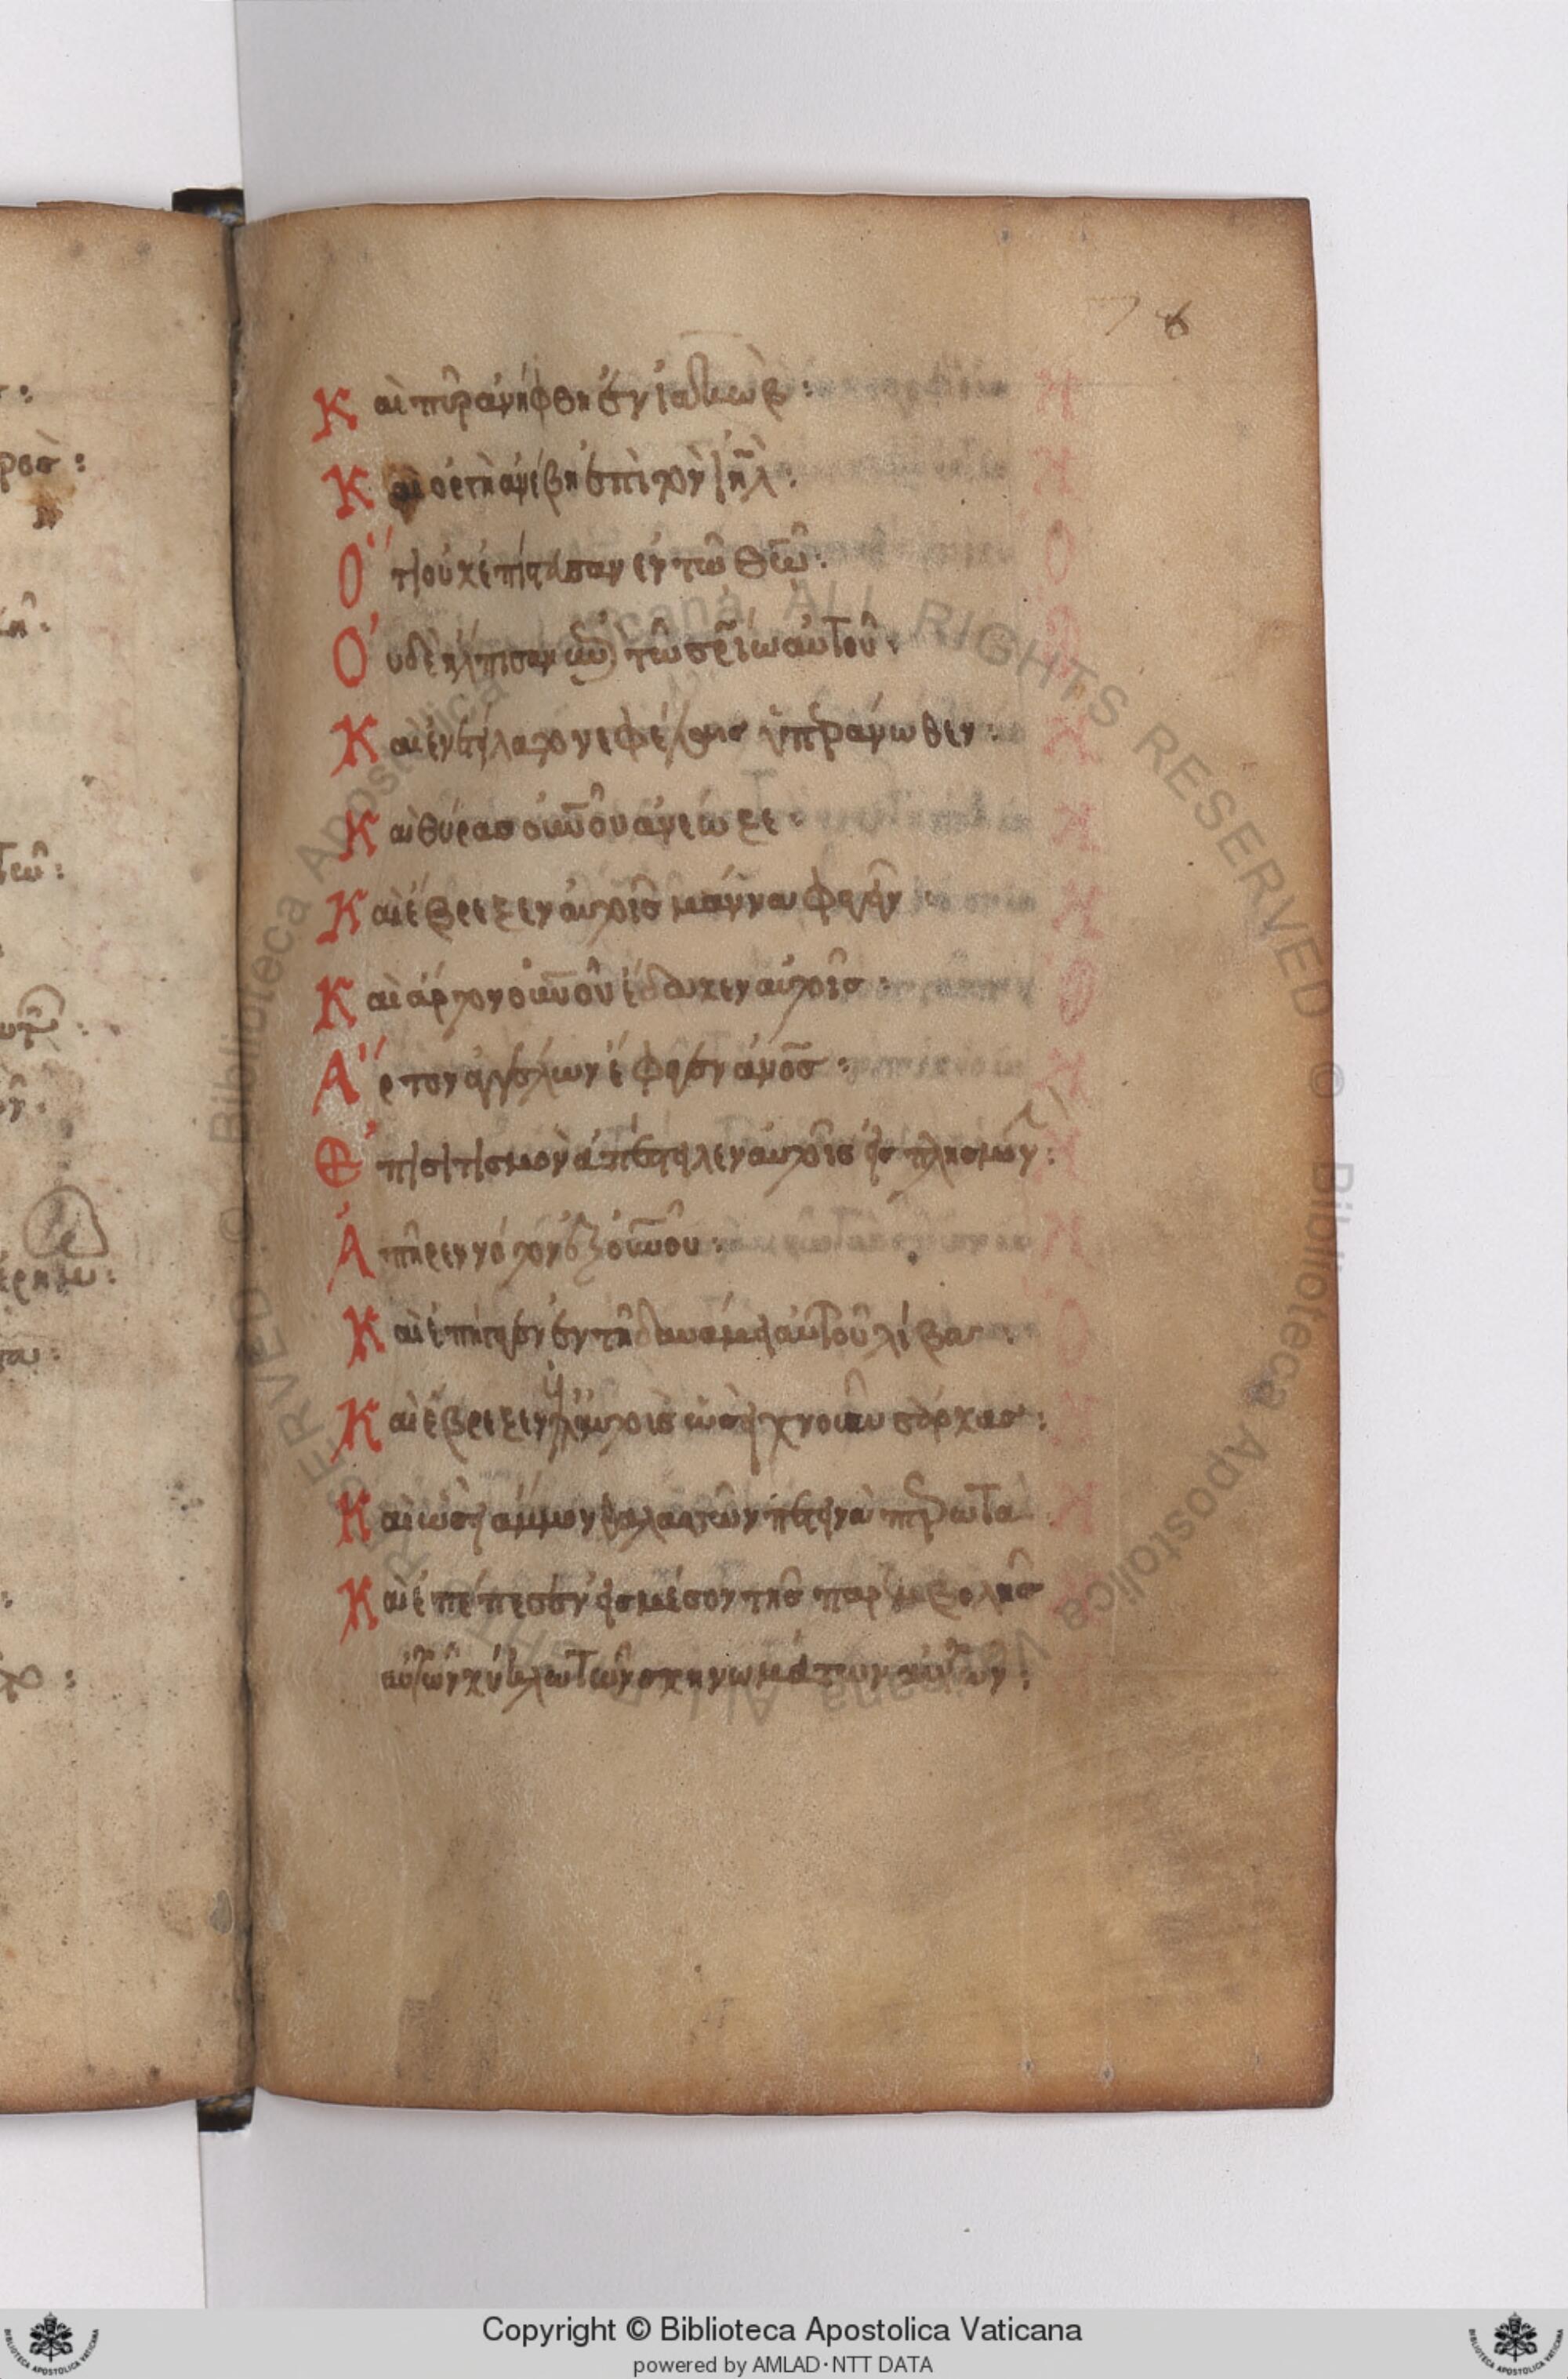 78
Καὶ πῦρ ἀνήφθη ἐν ϊακωβ:
Καὶ ὀργὴ ἀνέβη ἐπὶ τὸν ιη̅λ:
Ὅτι οὐκ ἐπίστευσαν ἐν τῶ θω̅:
Οὐδὲ ἤλπισαν ἐπὶ τὸ σρ̅ιον αὐτοῦ:
Καὶ ἐνετείλατο νεφέλαις ὑπεράνωθεν:
Καὶ θύρας οὐνοῦ ἀνέωξε:
Καὶ έβρεξεν αὐτοῖς μάννα φαγεῖν:
Καὶ άρτον οὐνοῦ έδωκεν αὐτοῖς:
Ἄρτον ἀγγέλων έφαγεν ἀνο̅ς:
Επισιτισμὸν ἀπέστειλεν αὐτοῖς εἰς πλησμονήν:
Ἀπῆρεν νότον ἐξ οὐνοῦ:
Καὶ ἐπήγαγεν ἐν τῆ δυναμει αὐτοῦ λίβα:
Καὶ έβρεξεν ἐπ αὐτοὺς ὡσεὶ χνοῦν σάρκας:
Καὶ ὡσεὶ άμμον θαλασσῶν πετεινὰ πτερωτά
Καὶ ἐπέπεσεν εἰς μέσον τῆς παρεμβολῆς
αὐτῶν κύκλω τῶν σκηνωμάτων αὐτῶν:
Copyright © Biblioteca Apostolica Vaticana
powered by AMLAD・NTT DATA